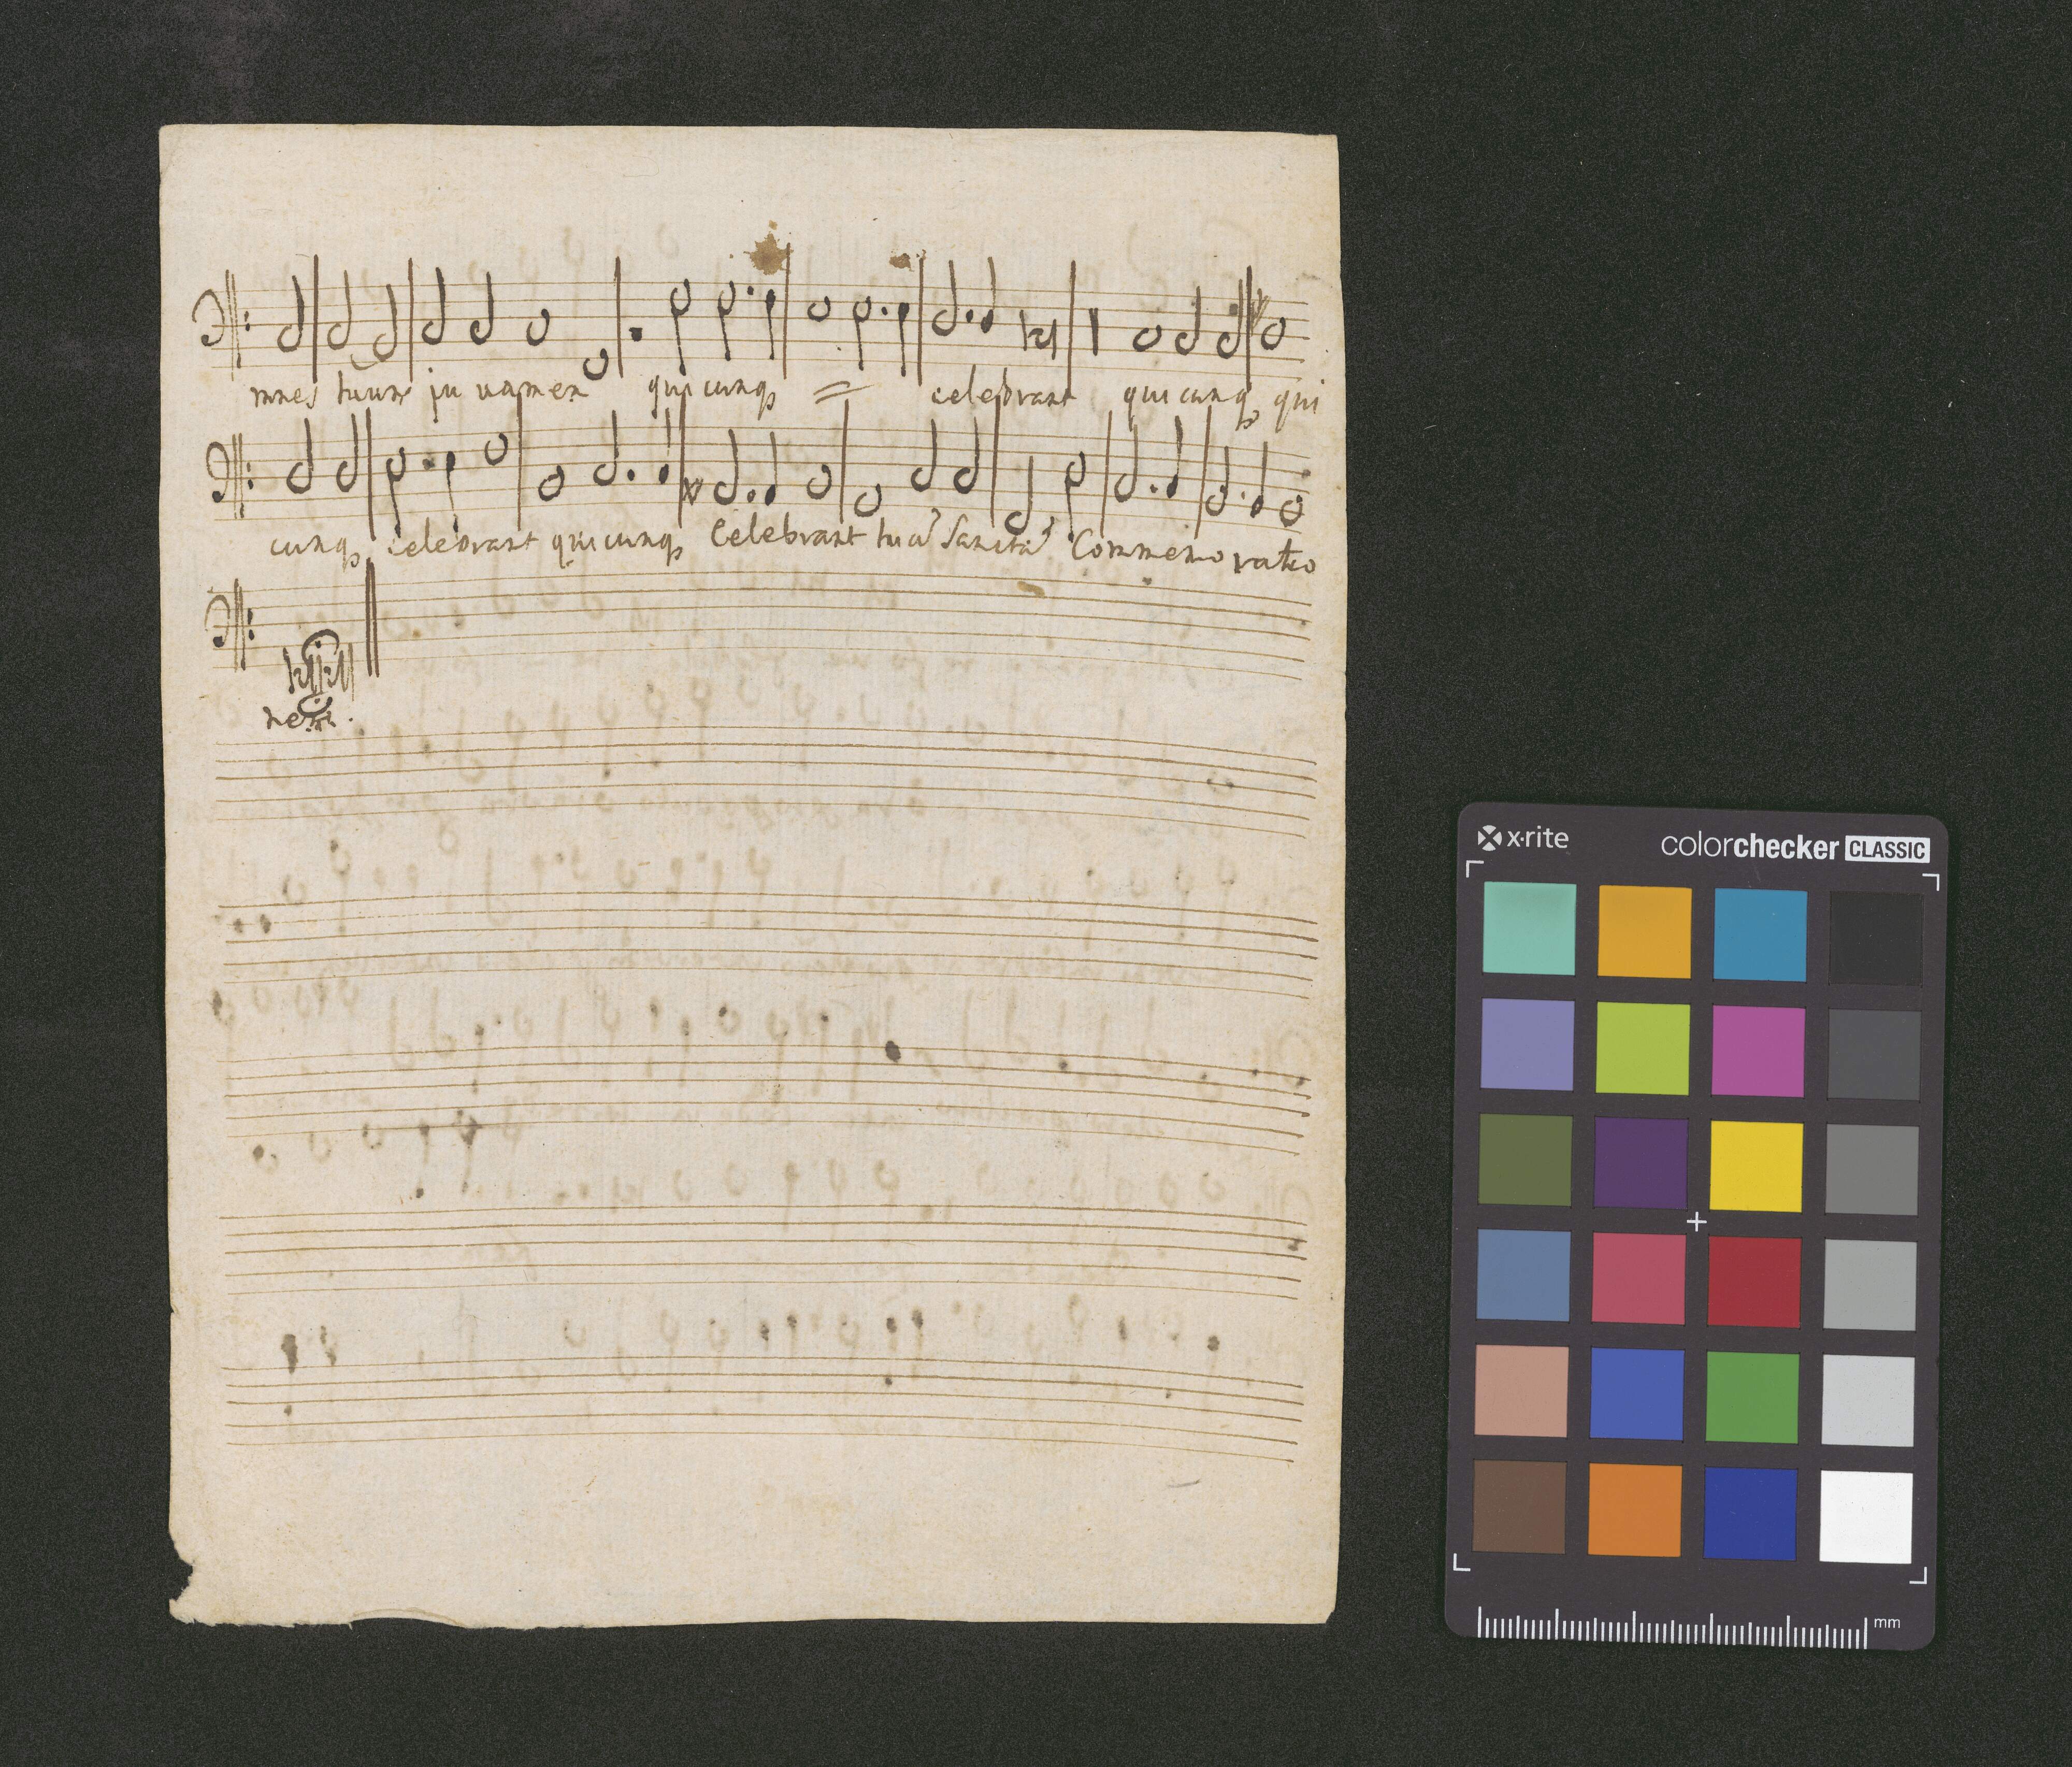 mnes tuum ju vamen quicunqꝫ = celebrant quicunqꝫ qui
cunqꝫ celebrant quicunqꝫ Celebrant tuā Sanctā Commemoratio
nem.
x·rite colorchecker CLASSIC
mm